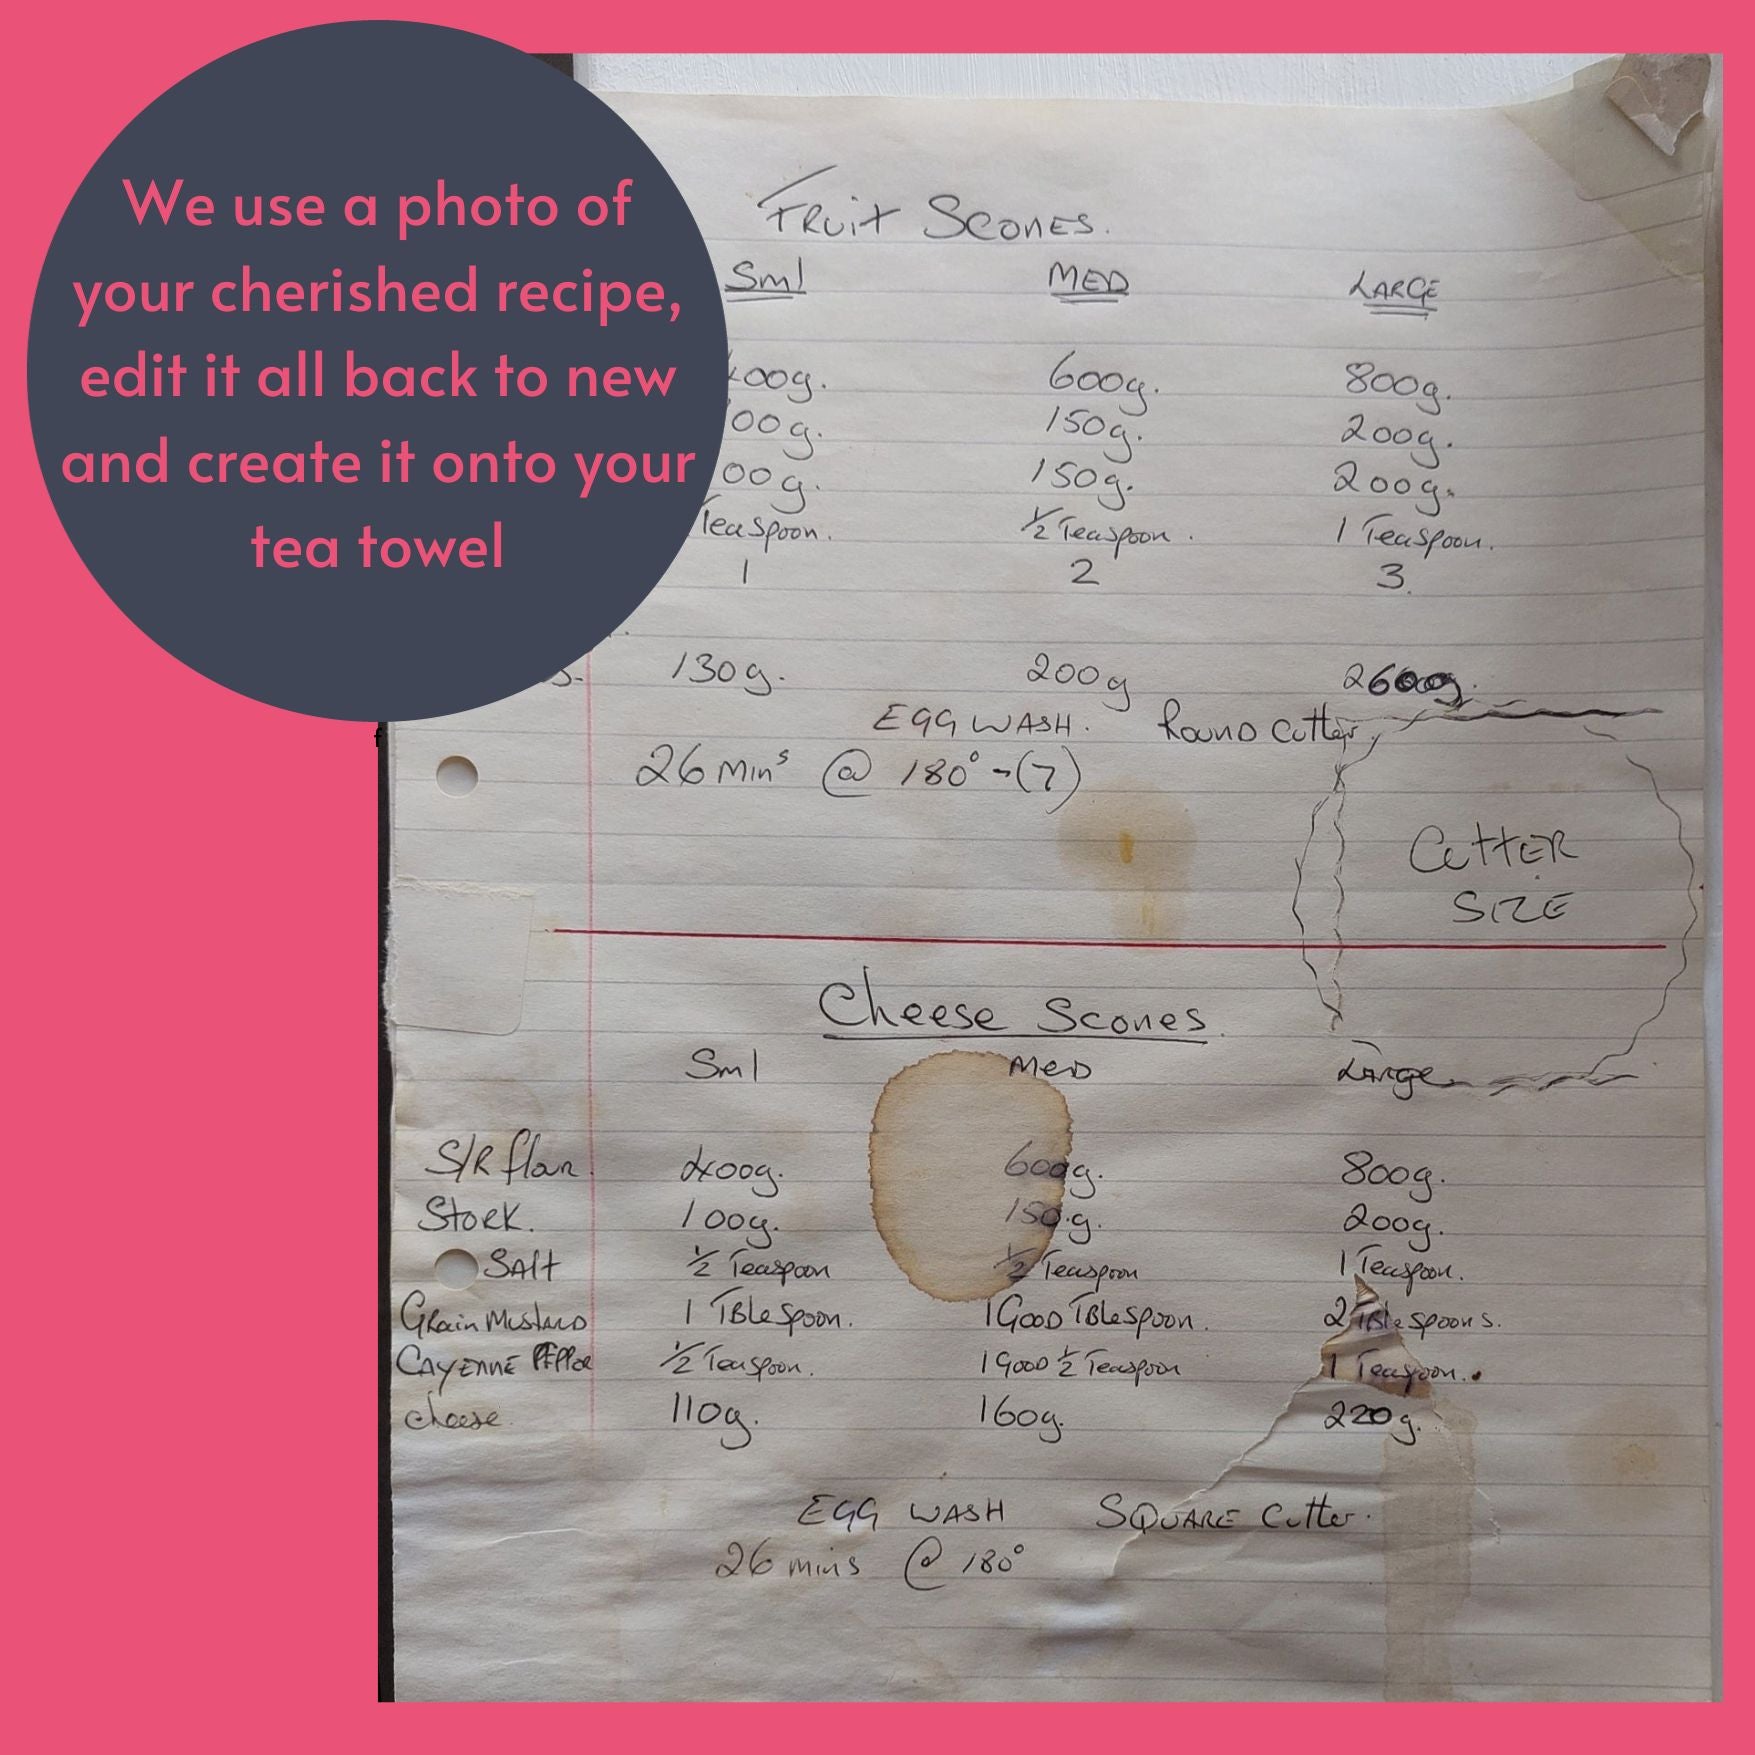 We use a photo of
your cherished recipe,
edit it all back to new
and create it onto your
tea towel
FRuit SCONES.
Sml MED LARGE
400g. 600g. 800g.
00g. 150g. 200g.
00g. 150g. 200g.
Teaspoon. 1/2 Teaspoon. 1 Teaspoon.
1 2 3.
130g. 200g 260g.
EGG WASH. Round Cutter.
26 Mins @ 180° -(7)
CUTTER
SIZE
Cheese Scones.
Sml MED Large
S/R flour. 400g. 600g. 800g.
Stork. 100g. 150.g. 200g.
Salt 1/2 Teaspoon 1/2 Teaspoon 1 Teaspoon.
GRain MustARD 1 TBleSpoon. 1 GOOD TBleSpoon. 2 TBleSpoons.
CAYENNE PEPPer 1/2 Teaspoon. 1 GOOD 1/2 Teaspoon 1 Teaspoon.
cheese. 110g. 160g. 220g.
EGG WASH SQUARE Cutter.
26 mins @ 180°